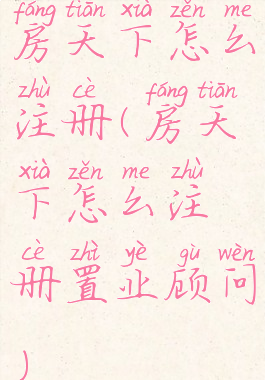 fáng tiān xià zěn me
房天下怎么
zhù cè fáng tiān
注册(房天
xià zěn me zhù
下怎么注
cè zhì yè gù wèn
册置业顾问
)